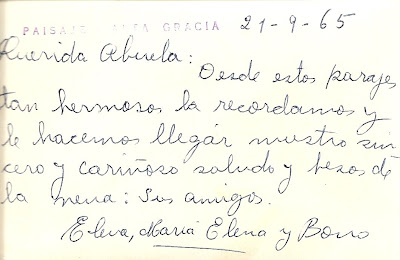 PAISAJE ALTA GRACIA 21-9-65
Querida Abuela:
Desde estos parajes
tan hermosos la recordamos y
le hacemos llegar nuestro sin
cero y cariñoso saludo y besos de
la nena: Sus amigos.
Elena, María Elena y